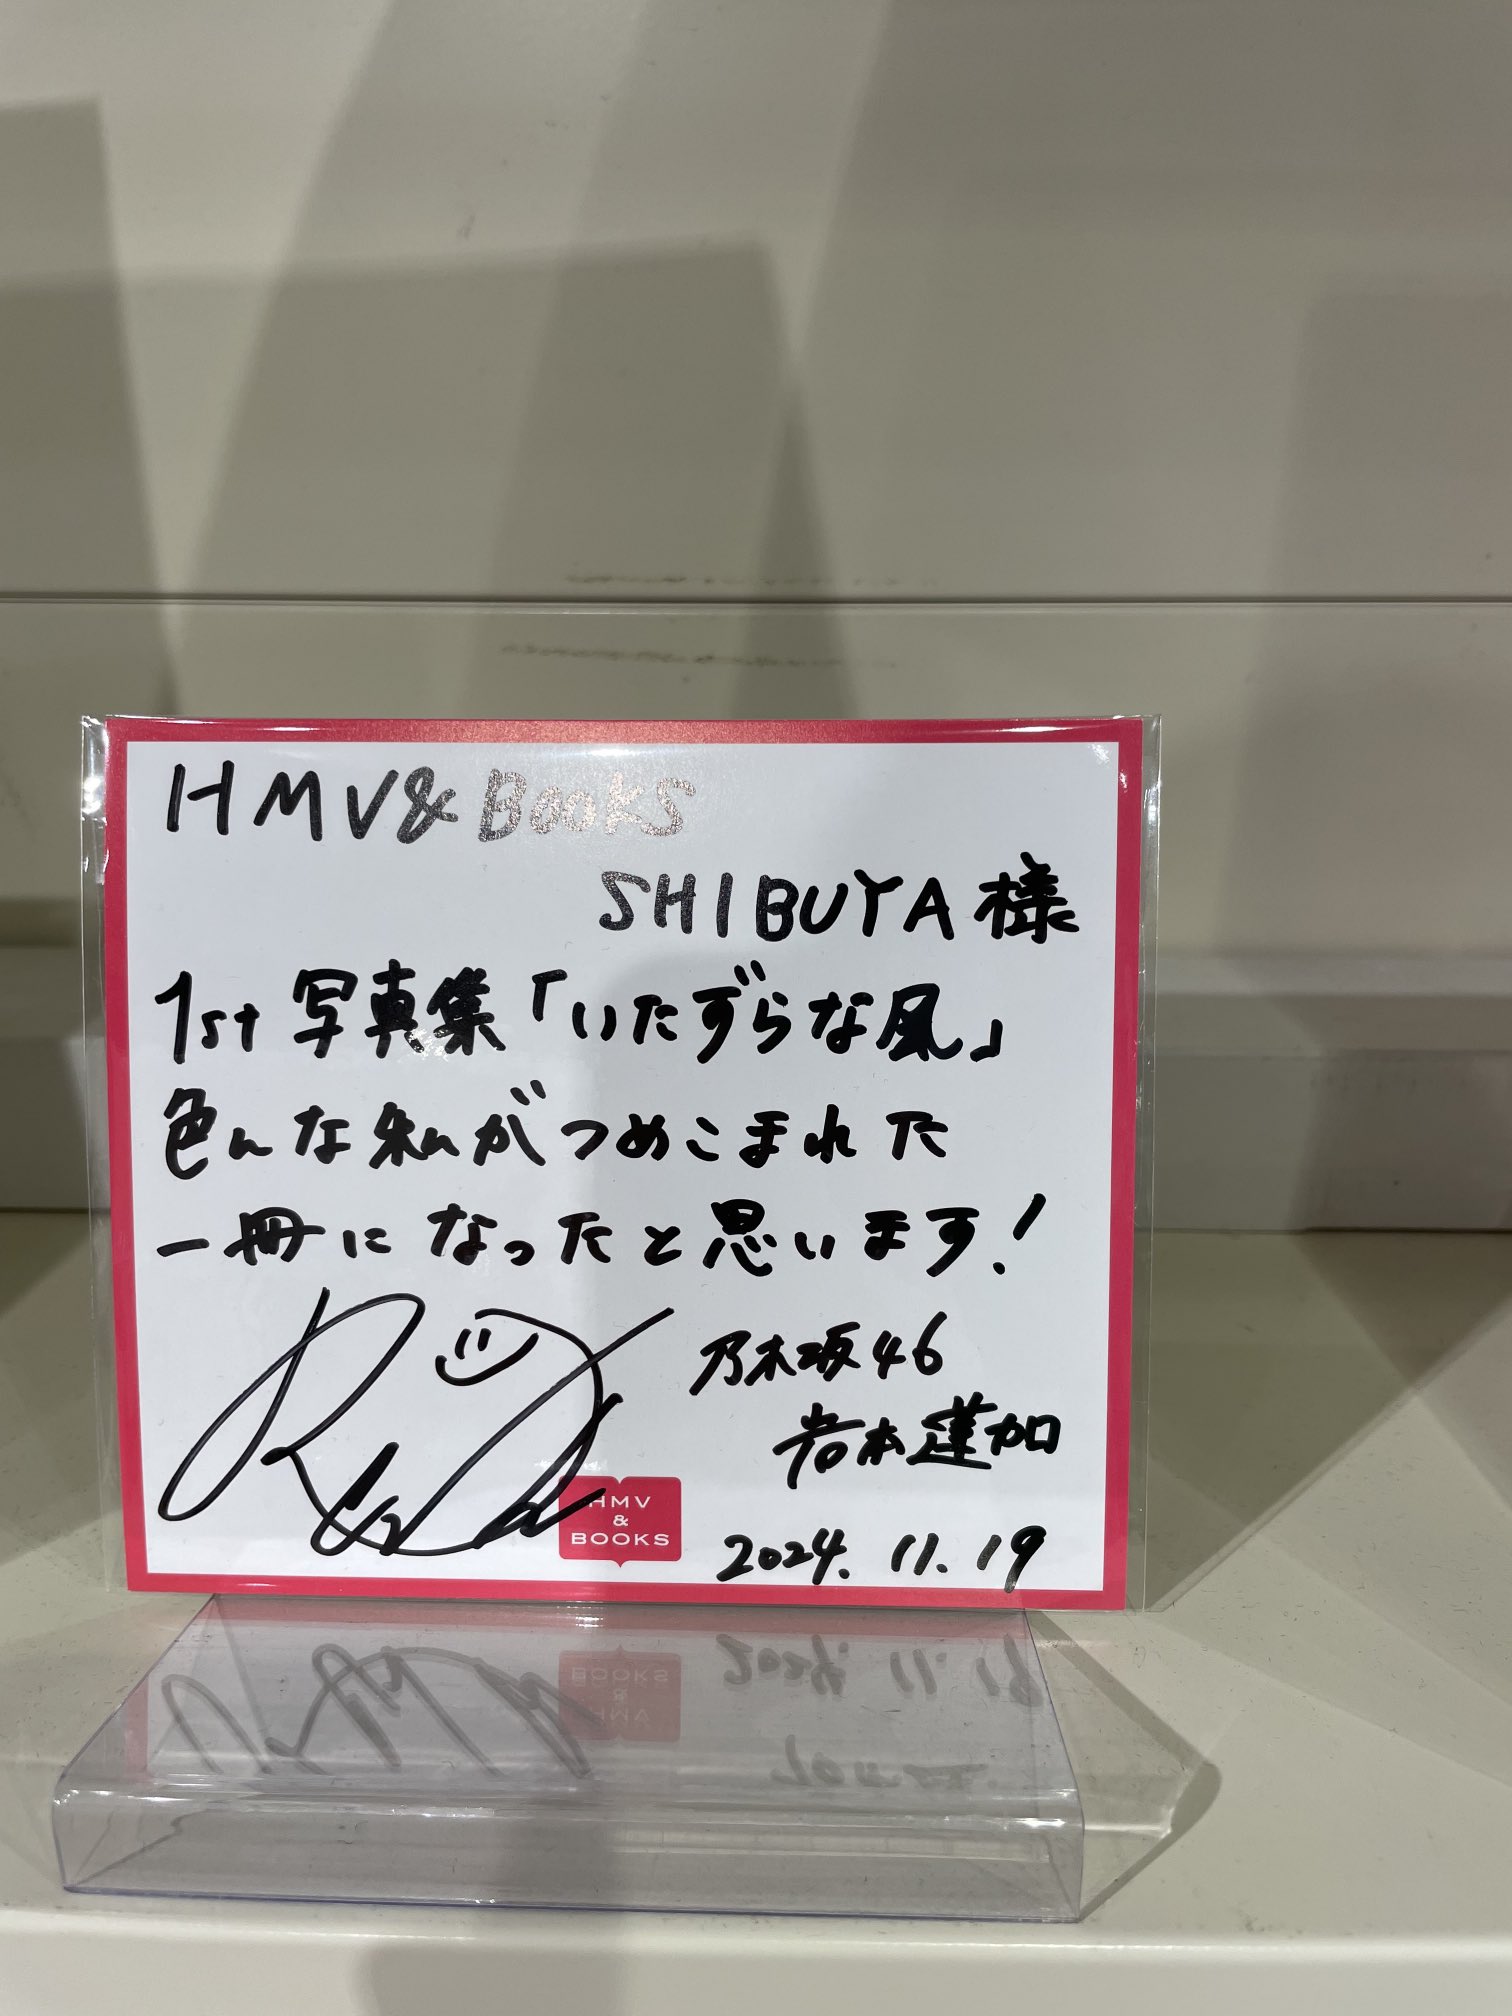 HMV&BOOKS
SHIBUYA様
1st写真集「いたずらな風」
色んな私がつめこまれた
一冊になったと思います!
乃木坂46
岩本蓮加
HMV
&
BOOKS
2024.11.19